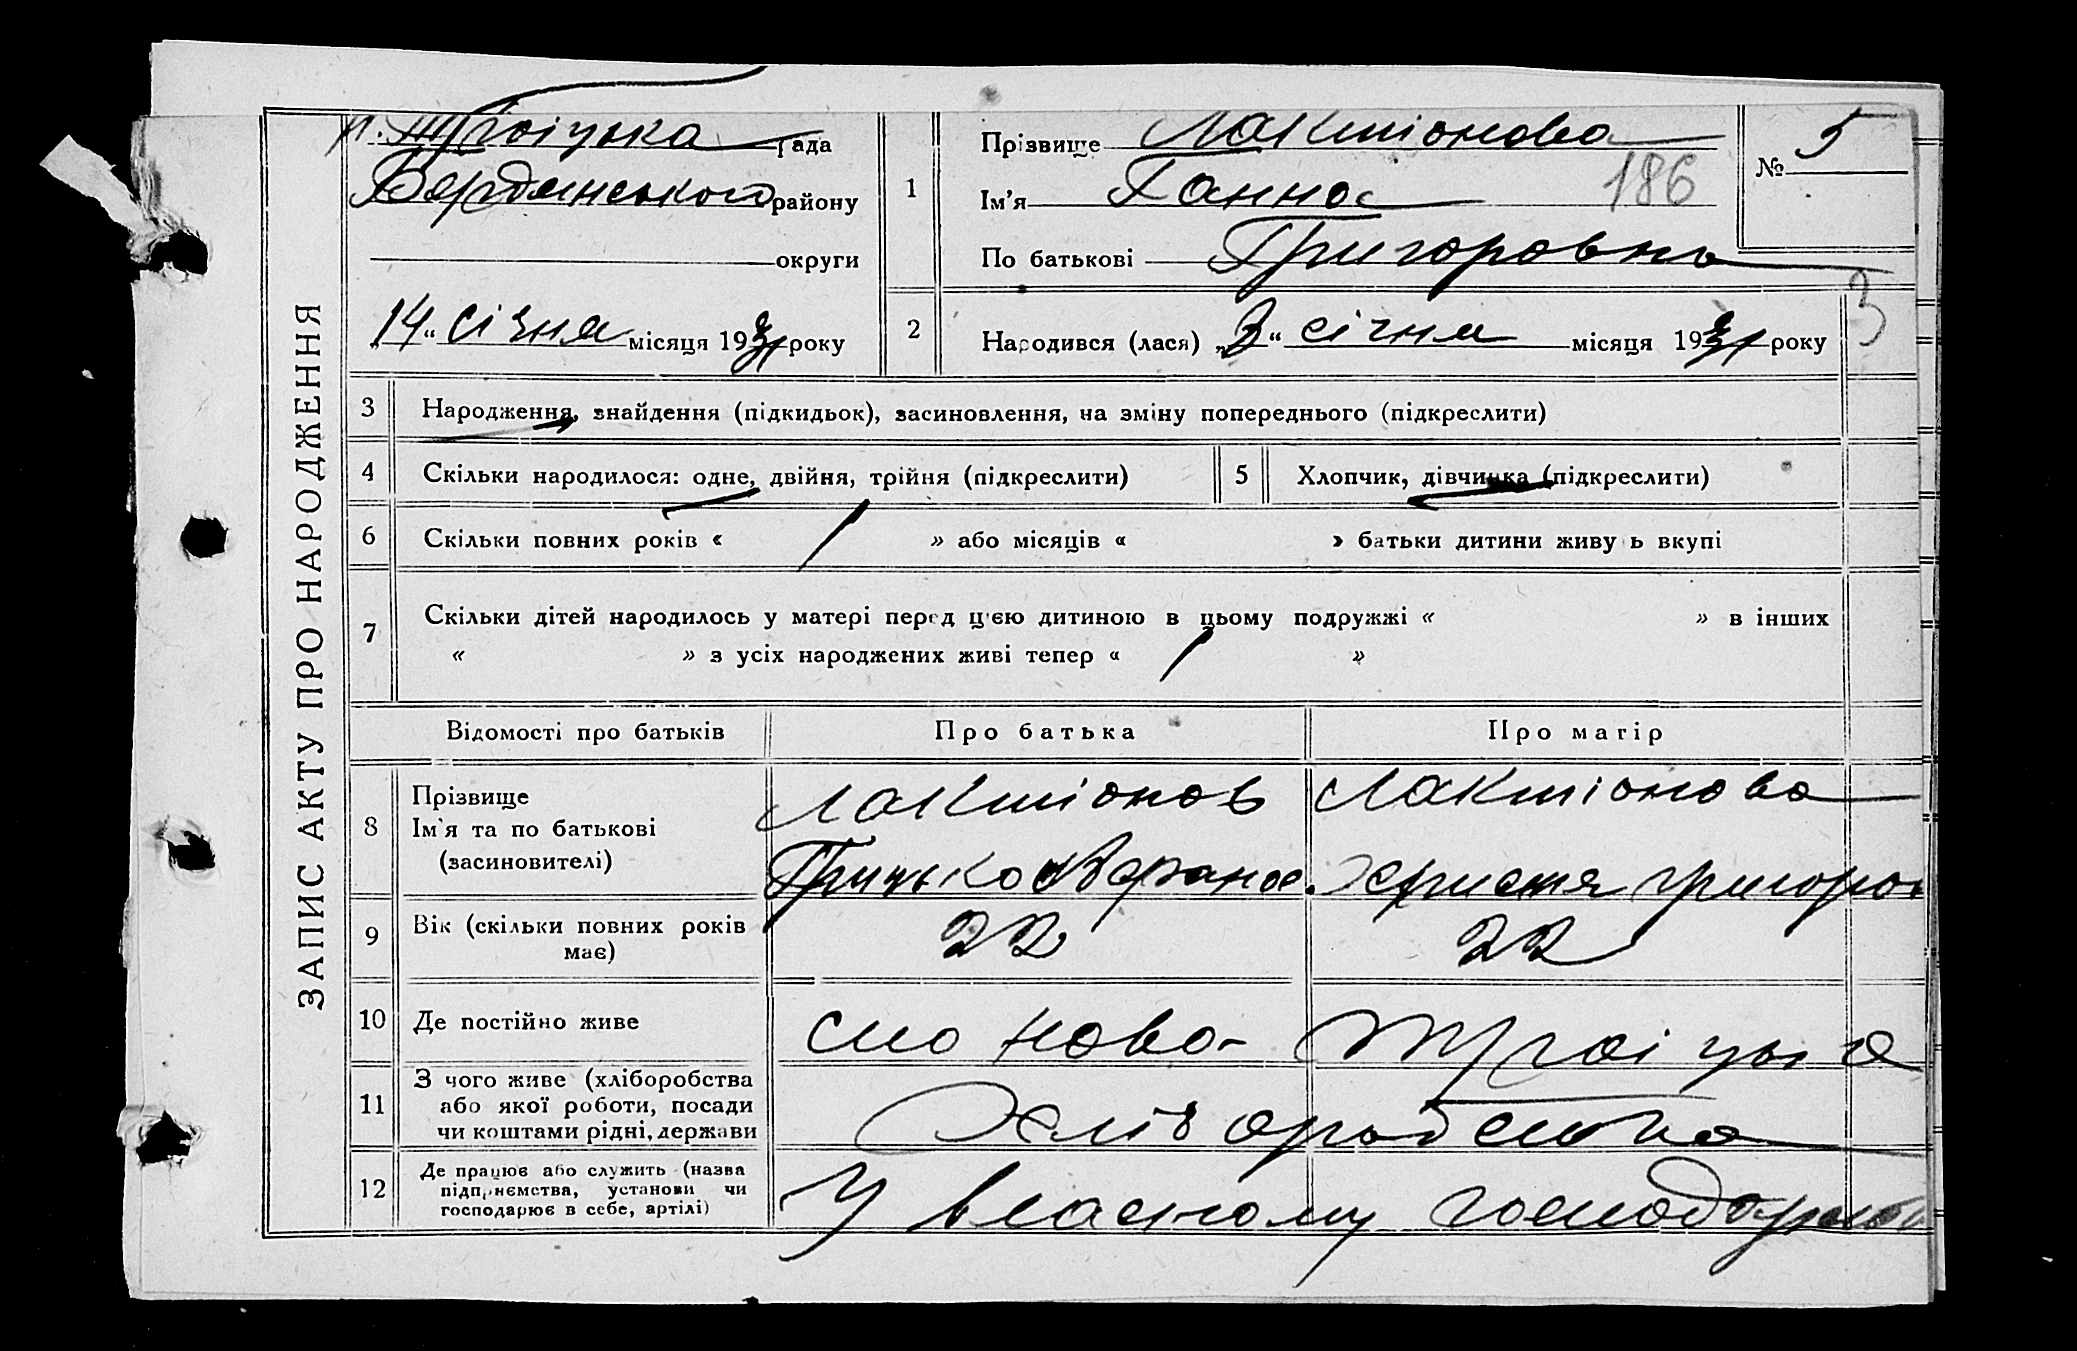 ЗАПИС АКТУ ПРО НАРОДЖЕННЯ
н. Троіцька рада
Бердянського району
округи
„14“ січня місяця 1931 року
1 Прізвище Лактіонова
Ім'я Ганна 186
По батькові Григоровна
№ 5
2 Народився (лася) „3“ січня місяця 1931 року
3
3 Народження, знайдення (підкидьок), засиновлення, на зміну попереднього (підкреслити)
4 Скільки народилося: одне, двійня, трійня (підкреслити) 5 Хлопчик, дівчинка (підкреслити)
6 Скільки повних років « » або місяців « » батьки дитини живуть вкупі
7 Скільки дітей народилось у матері перед цією дитиною в цьому подружжі « » в інших
« » з усіх народжених живі тепер « »
Відомості про батьків Про батька Про матір
8 Прізвище
Ім'я та по батькові
(засиновителі)
Лактіонов Лактіонова
Грицько Христя григоров
9 Вік (скільки повних років
має)
22 22
10 Де постійно живе
село Ново- Троіцька
11 З чого живе (хліборобства
або якої роботи, посади
чи коштами рідні, держави
Хліборобства
12 Де працює або служить (назва
підприємства, установи чи
господарює в себе, артілі)
У власному